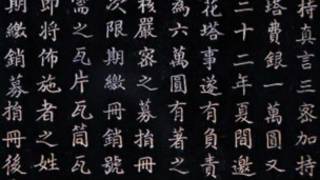 持真言三密加持
塔費銀一萬圓又
三十二年夏間邀
花塔事遂有負責
為六萬圓有著之
核嚴密之募捐冊
次限期繳冊銷號
需之瓦片瓦筒瓦
即將佈施者之姓
期繳銷募捐冊後